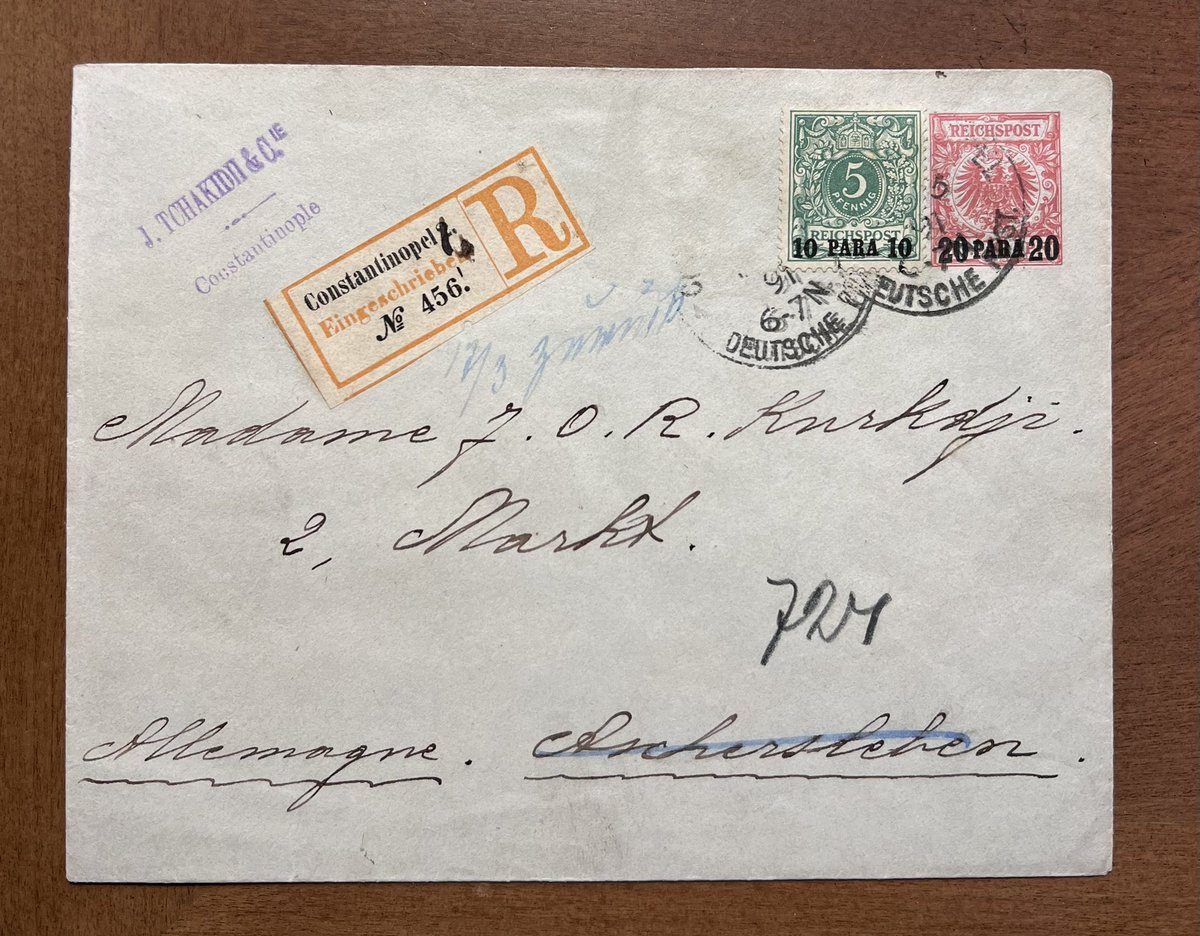 J. TCHAKIDJI & C.IE
Constantinople
Constantinopel 1.
Eingeschrieben.
№ 456.
R
5
PFENNIG
REICHSPOST
10 PARA 10
REICHSPOST
20 PARA 20
6-7N
DEUTSCHE
DEUTSCHE
17/3 zurück
Madame J. O. R. Kurkdji.
2, Markt.
724
Allemagne. Aschersleben.